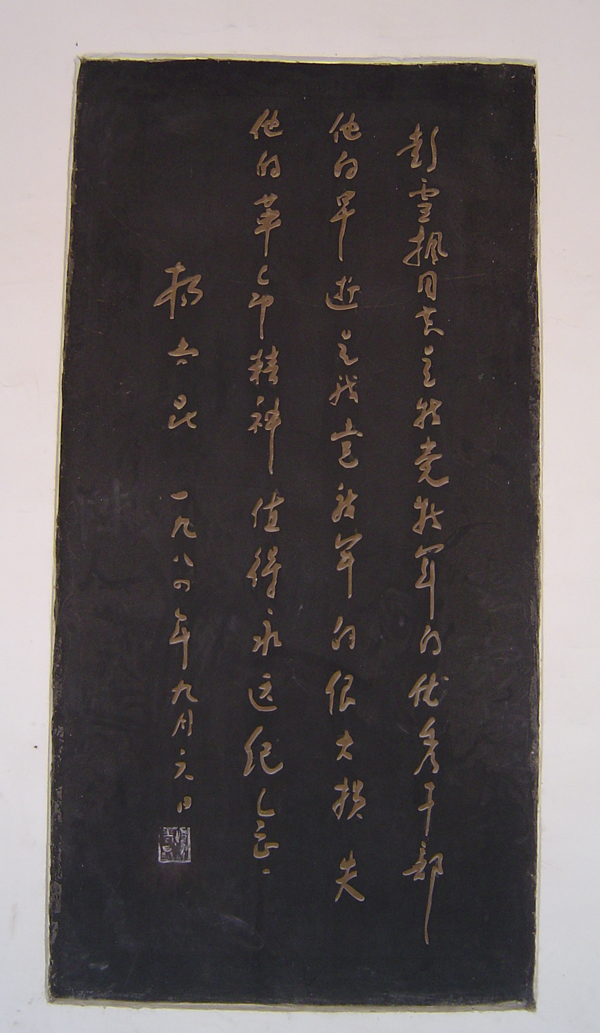 彭雪枫同志是我党我军的优秀干部
他的早逝是我党我军的很大损失
他的革命精神值得永远纪念。
杨尚昆 一九八四年九月六日